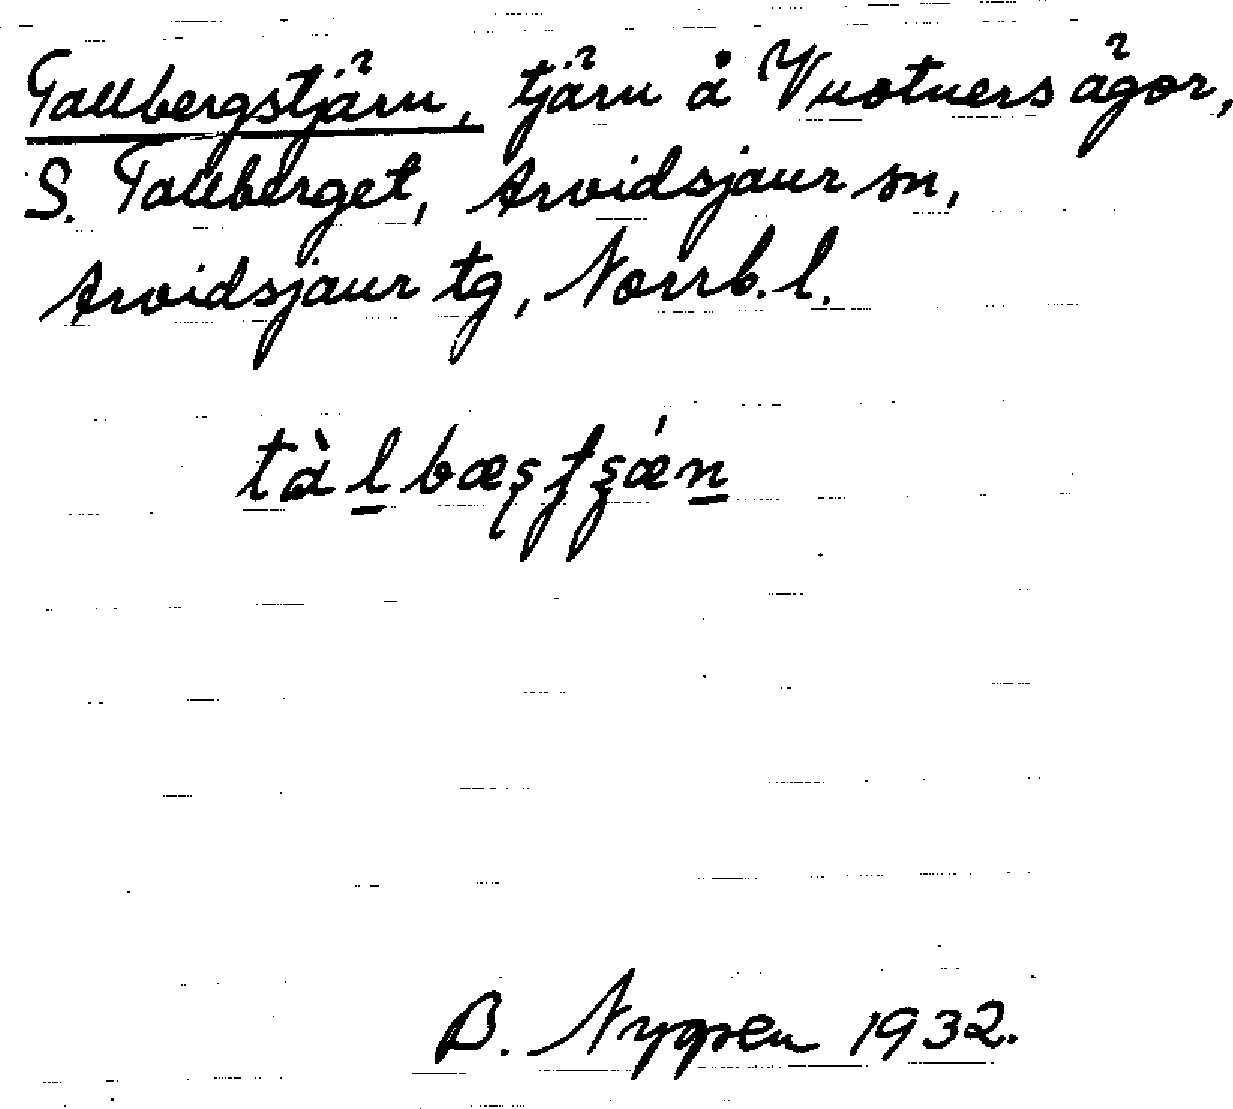 Tallbergstjärn, tjärn å Vuotners ägor,
S. Tallberget, Arvidsjaur sn,
Arvidsjaur tg, Norrb. l.
B. Nygren 1932.